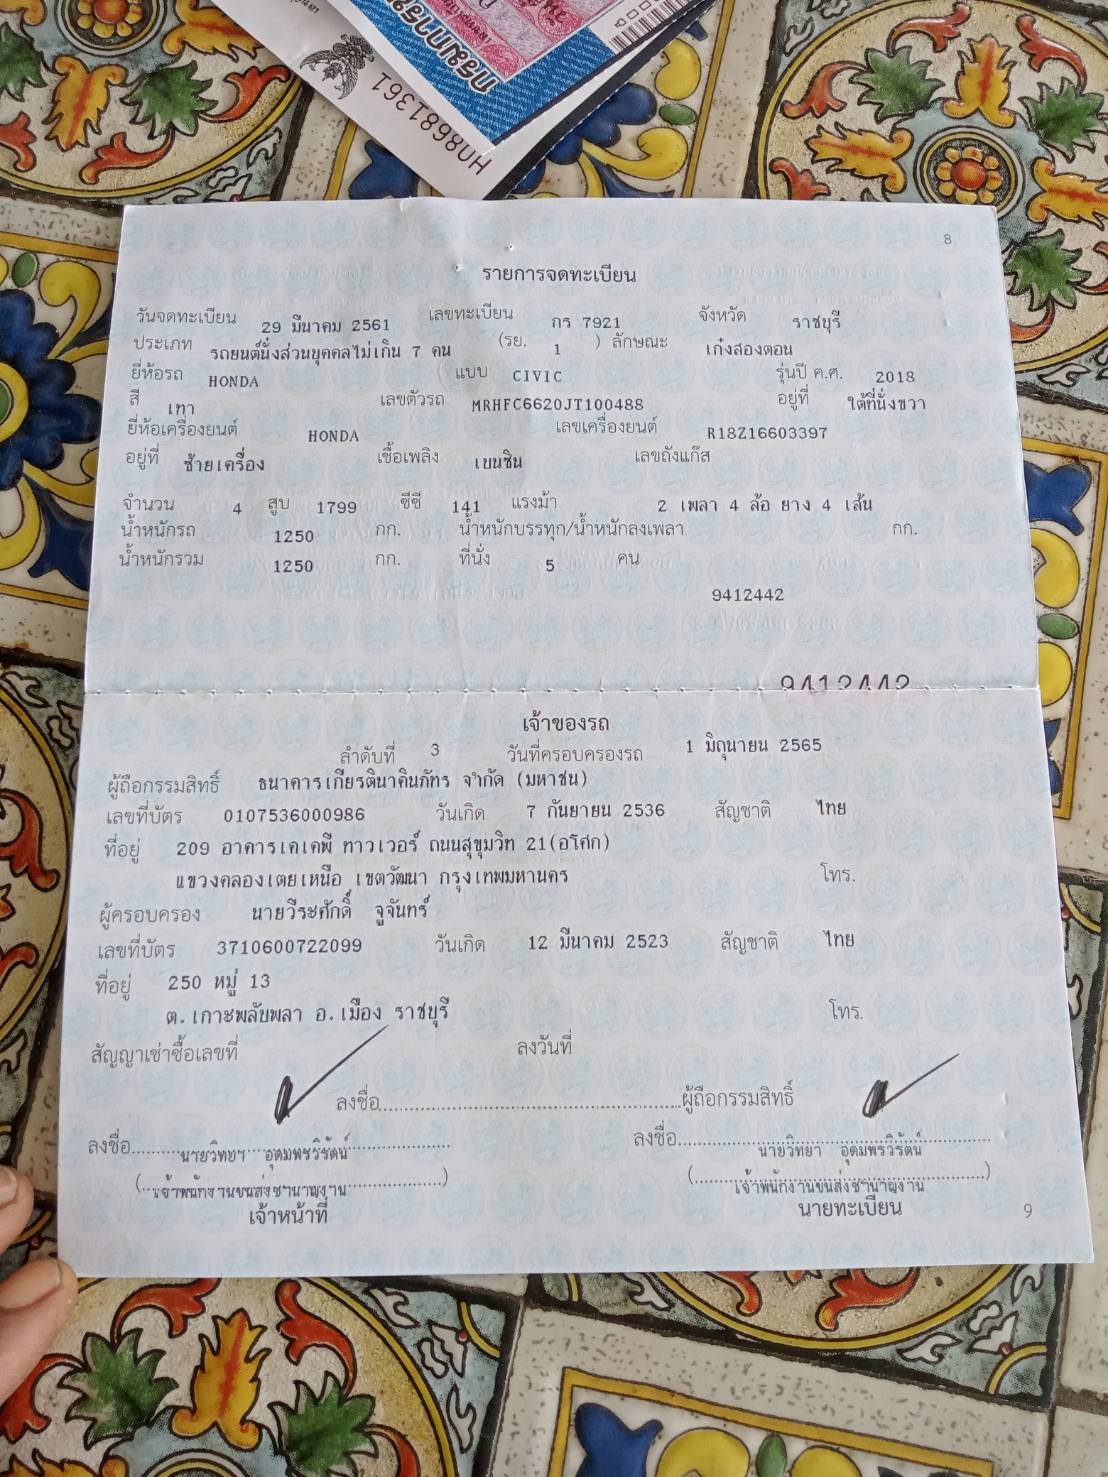 กรมการข
HN8681361
8
รายการจดทะเบียน
วันจดทะเบียน 29 มีนาคม 2561 เลขทะเบียน กร 7921 จังหวัด ราชบุรี
ประเภท รถยนต์นั่งส่วนบุคคลไม่เกิน 7 คน (รย. 1 ) ลักษณะ เก๋งสองตอน
ยี่ห้อรถ HONDA แบบ CIVIC รุ่นปี ค.ศ. 2018
สี เทา เลขตัวรถ MRHFC6620JT100488 อยู่ที่ ใต้ที่นั่งขวา
ยี่ห้อเครื่องยนต์ HONDA เลขเครื่องยนต์ R18Z16603397
อยู่ที่ ซ้ายเครื่อง เชื้อเพลิง เบนซิน เลขถังแก๊ส
จำนวน 4 สูบ 1799 ซีซี 141 แรงม้า 2 เพลา 4 ล้อ ยาง 4 เส้น
น้ำหนักรถ 1250 กก. น้ำหนักบรรทุก/น้ำหนักลงเพลา กก.
น้ำหนักรวม 1250 กก. ที่นั่ง 5 คน
9412442
9412442
เจ้าของรถ
ลำดับที่ 3 วันที่ครอบครองรถ 1 มิถุนายน 2565
ผู้ถือกรรมสิทธิ์ ธนาคารเกียรตินาคินภัทร จำกัด (มหาชน)
เลขที่บัตร 0107536000986 วันเกิด 7 กันยายน 2536 สัญชาติ ไทย
ที่อยู่ 209 อาคารเคเคพี ทาวเวอร์ ถนนสุขุมวิท 21(อโศก)
แขวงคลองเตยเหนือ เขตวัฒนา กรุงเทพมหานคร โทร.
ผู้ครอบครอง นายวีระศักดิ์ จูจันทร์
เลขที่บัตร 3710600722099 วันเกิด 12 มีนาคม 2523 สัญชาติ ไทย
ที่อยู่ 250 หมู่ 13
ต.เกาะพลับพลา อ.เมือง ราชบุรี โทร.
สัญญาเช่าซื้อเลขที่ ลงวันที่
ลงชื่อ ผู้ถือกรรมสิทธิ์
ลงชื่อ นายวิทยา อุดมพรวิรัตน์ ลงชื่อ นายวิทยา อุดมพรวิรัตน์
(เจ้าพนักงานขนส่งชำนาญงาน) (เจ้าพนักงานขนส่งชำนาญงาน)
เจ้าหน้าที่ นายทะเบียน 9